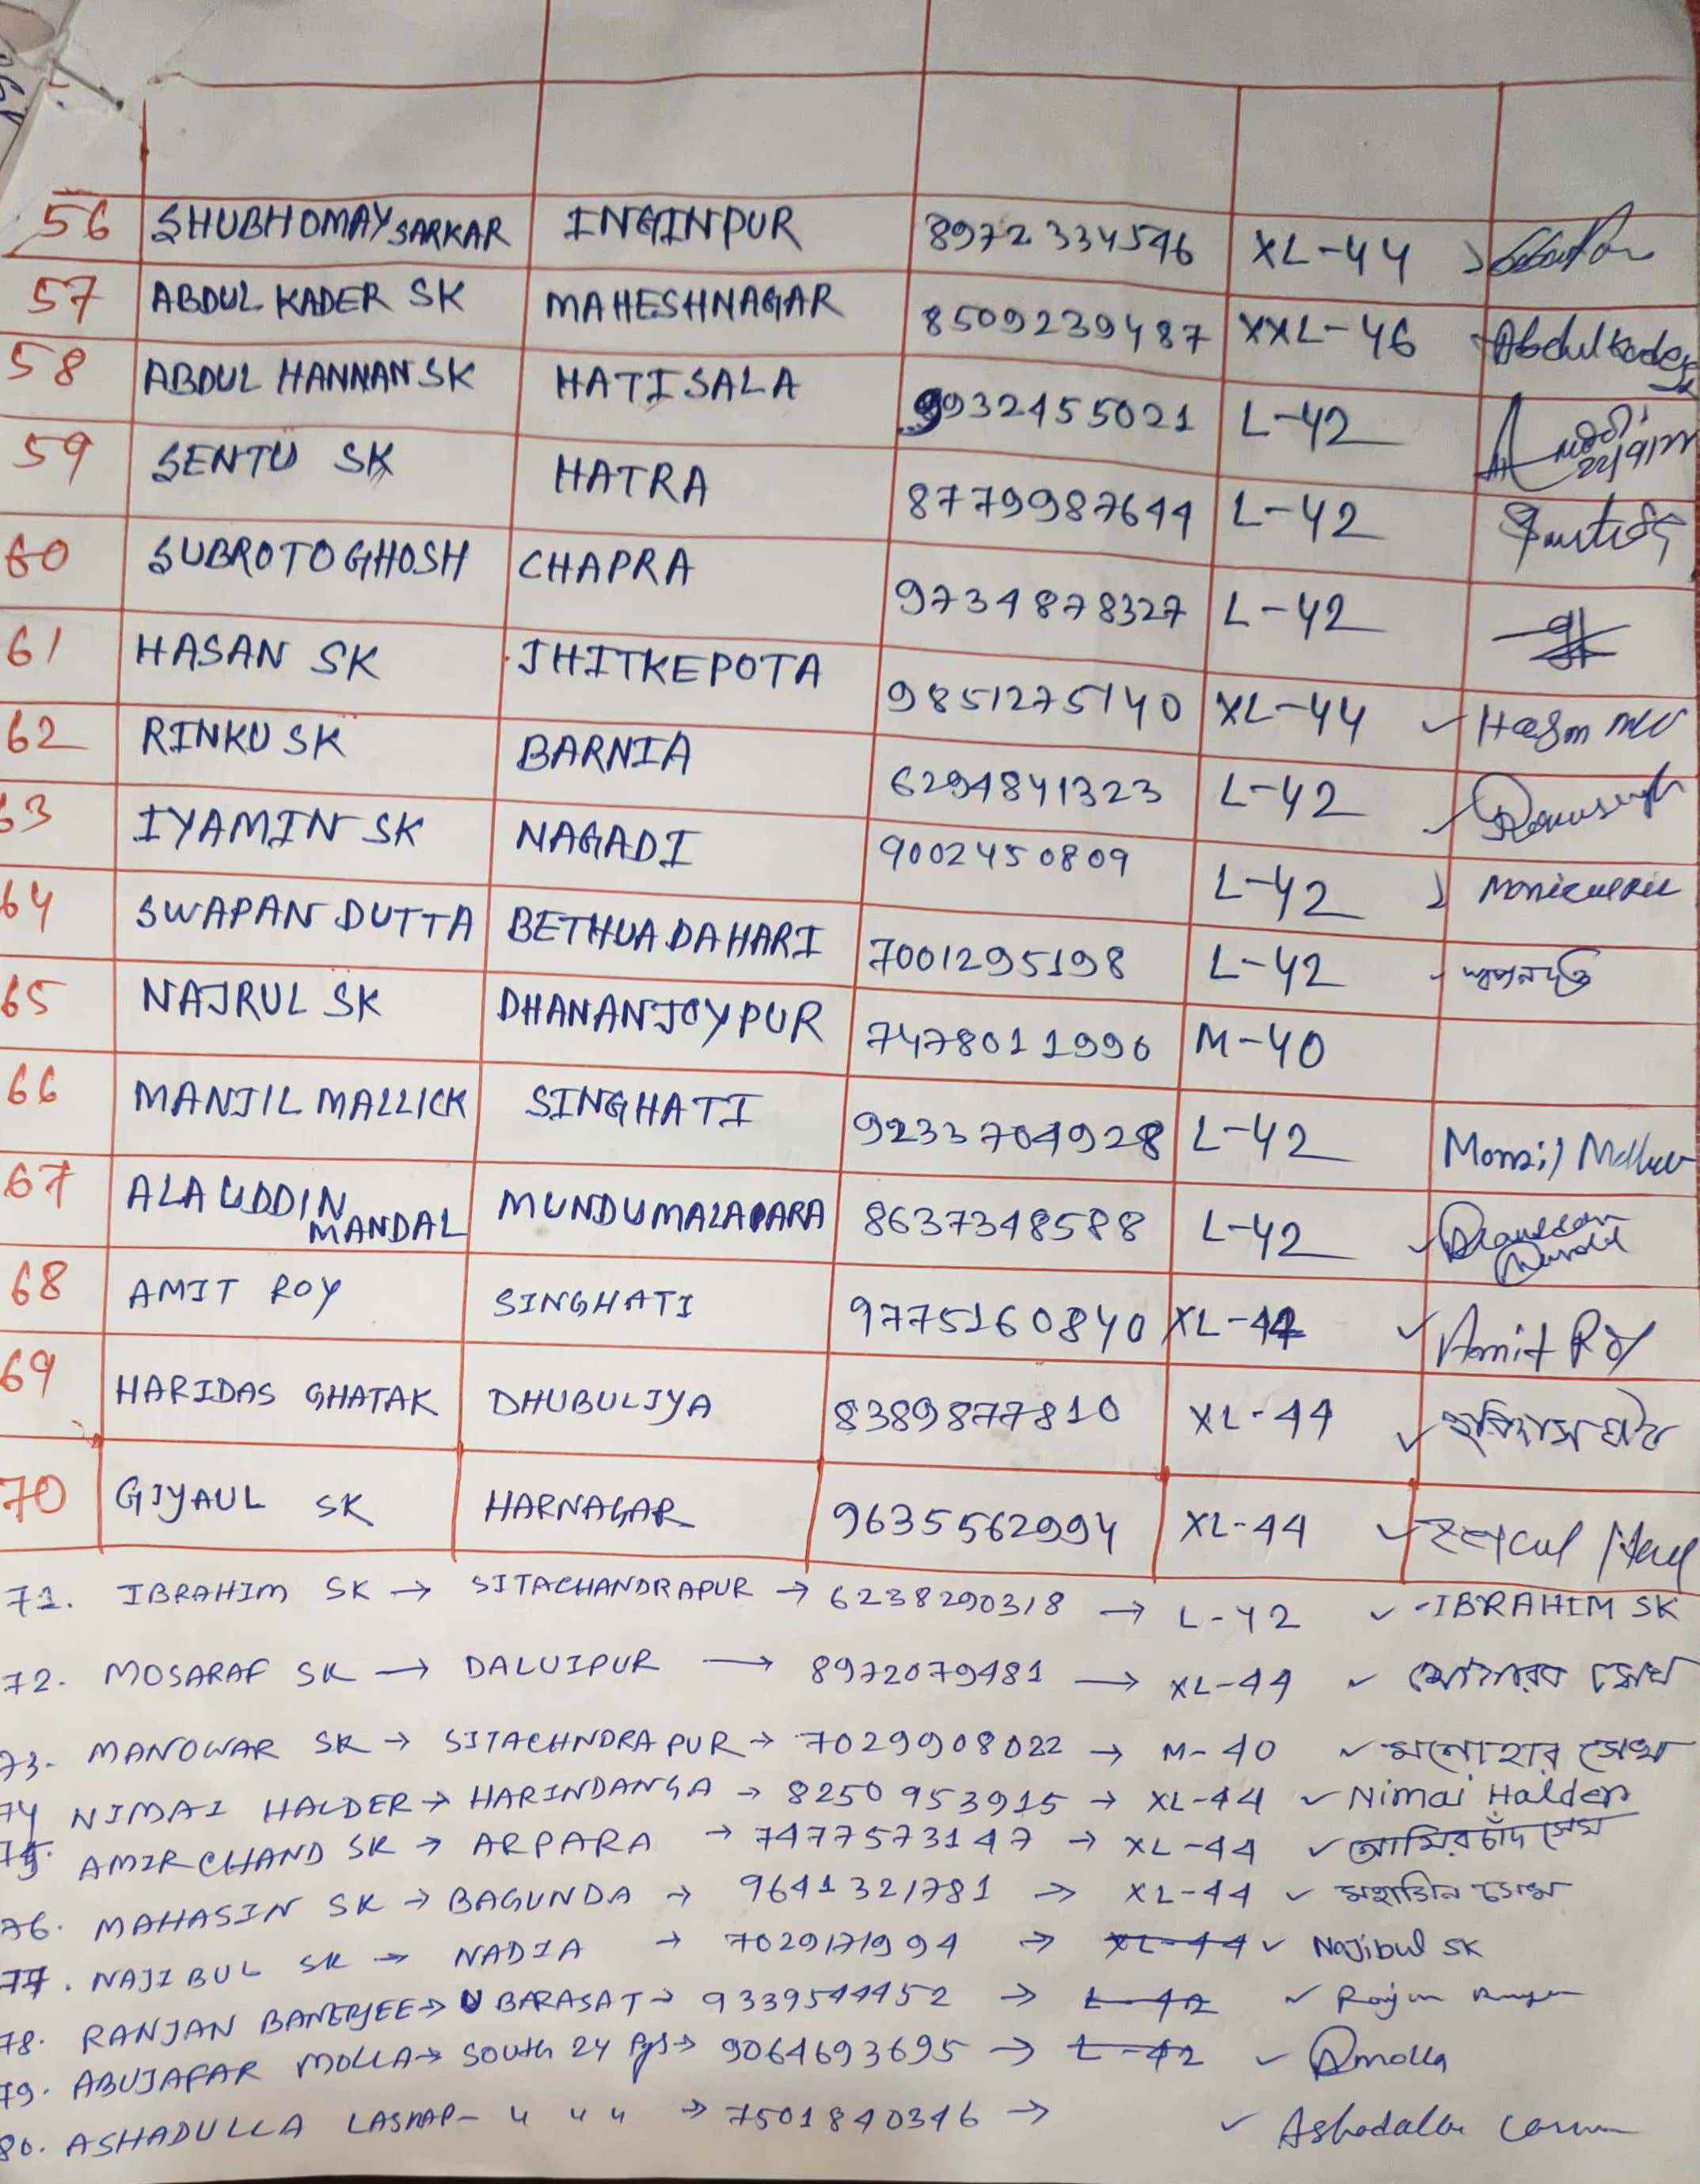 56 SHUBHOMAY SARKAR INGINPUR 8972334546 XL-44
57 ABDUL KADER SK MAHESHNAGAR 8509239487 XXL-46 Abdulkader Sk
58 ABDUL HANNAN SK HATISALA 9932455021 L-42
59 SENTU SK HATRA 8779987644 L-42
60 SUBROTO GHOSH CHAPRA 9734878327 L-42
61 HASAN SK JHITKEPOTA 9851275140 XL-44
62 RINKU SK BARNIA 6294841323 L-42
63 IYAMIN SK NAGADI 9002450809 L-42
64 SWAPAN DUTTA BETHUADAHARI 7001295198 L-42 স্বপন দত্ত
65 NAJRUL SK DHANANJOYPUR 7478011996 M-40
66 MANJIL MALLICK SINGHATI 9233704928 L-42
67 ALAUDDIN MANDAL MUNDUMALAPARA 8637348588 L-42
68 AMIT ROY SINGHATI 9775160840 XL-44 Amit Roy
69 HARIDAS GHATAK DHUBULIYA 8389877810 XL-44 হরিদাস ঘটক
70 GIYAUL SK HARNAGAR 9635562994 XL-44
71. IBRAHIM SK → SITACHANDRAPUR → 6238290318 → L-42 ✓ -IBRAHIM SK
72. MOSARAF SK → DALUIPUR → 8972079481 → XL-44 ✓
73. MANOWAR SK → SITACHNDRAPUR → 7029908022 → M-40 ✓ মনোহার সেখ
74 NIMAI HALDER → HARINDANGA → 8250953915 → XL-44 ✓ Nimai Halder
75. AMIR CHAND SK → ARPARA → 7477573147 → XL-44 ✓ আমির চাঁদ সেখ
76. MAHASIN SK → BAGUNDA → 9641321781 → XL-44 ✓
77. NAJIBUL SK → NADIA → 7029171994 → XL-44 ✓ Najibul SK
78. RANJAN BANERJEE → BARASAT → 9339544452 → L-42 ✓
79. ABUJAFAR MOLLA → South 24 Pgs → 9064693695 → L-42 ✓ Amolla
80. ASHADULLA LASKAR - " " " → 7501840346 → ✓